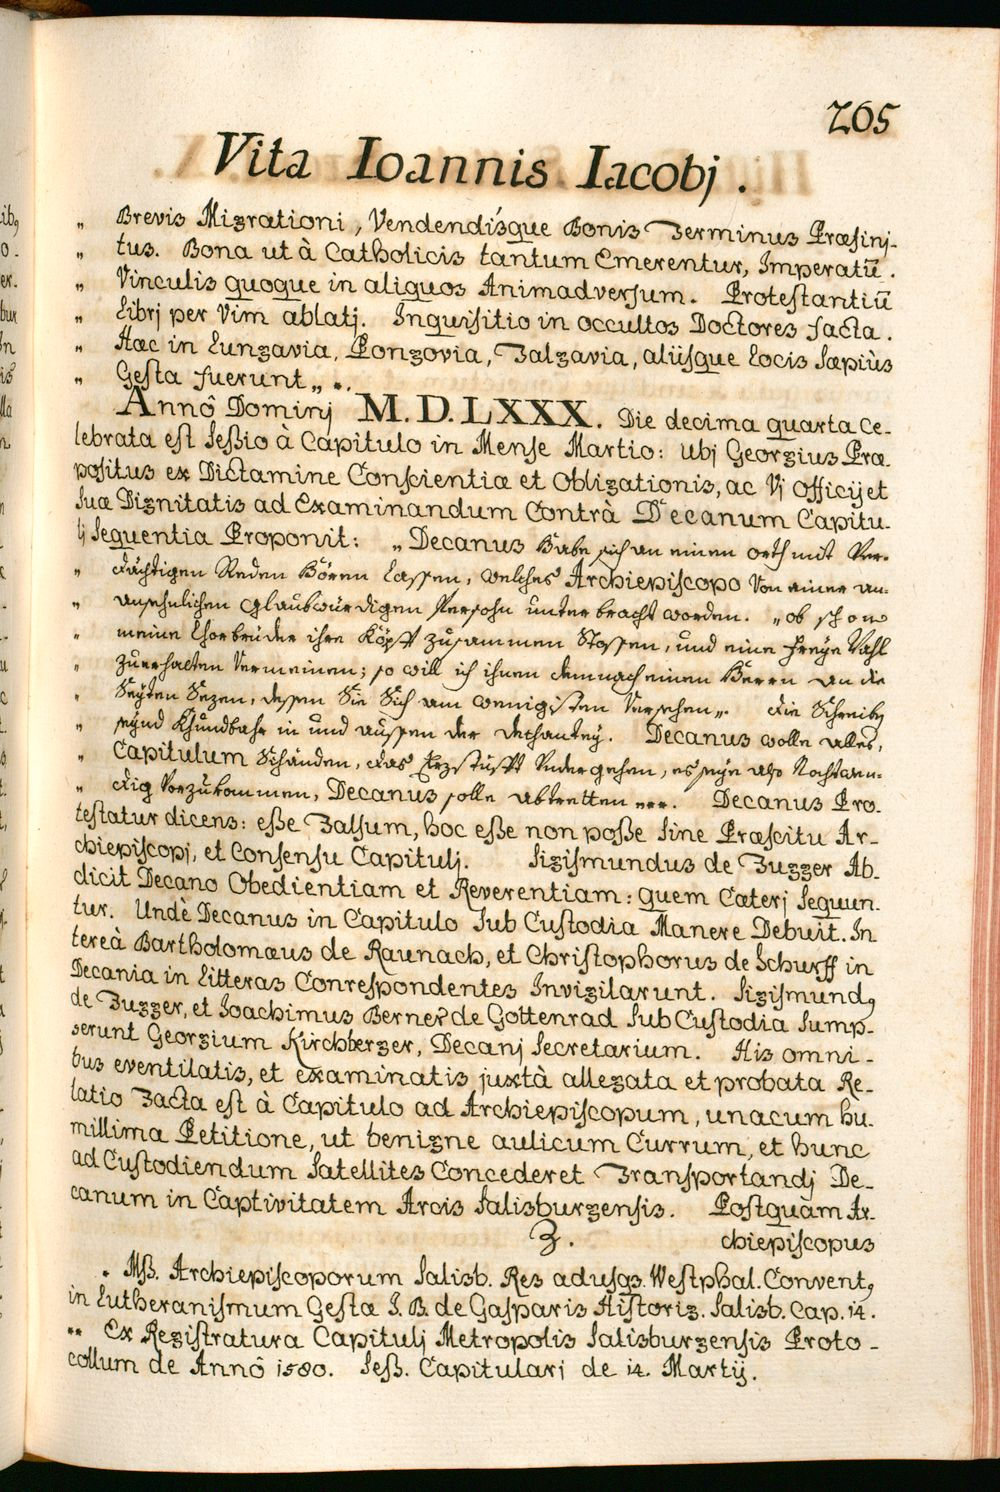 265
Vita Ioannis Iacobj.
„ Brevis Migrationi, Vendendisque Bonis Terminus Præfinj-
„ tus. Bona ut à Catholicis tantum Emerentur, Imperatū.
„ Vinculis quoque in aliquos Animadversum. Protestantiū
„ Librj per Vim ablatj. Inquisitio in occultos Doctores facta.
„ Hæc in Lungavia, Pongovia, Falgavia, aliisque Locis sæpiùs
„ Gesta fuerunt„ *.
Annô Dominj M.D.LXXX. Die decima quarta ce-
lebrata est seßio à Capitulo in Mense Martio: Ubj Georgius Præ-
positus ex Dictamine Conscientiæ et Obligationis, ac Vj Officij et
suæ Dignitatis ad Examinandum Contrà Decanum Capitu-
lj sequentia Proponit: „Decanus Habe sich an einen orth mit Ver-
„ dächtigen Reden Hören Lassen, welches Archiepiscopo Von einer an-
„ ansehnlichen glaubwürdigen Persohn unterbracht worden. „ob schon
„ meine Chorbrüder ihre Köpff zusammen Stossen, und eine freye Wahl
„ zuerhalten Vermeinen; so will ich ihnen demnach einen Herrn an die
„ Seyten Sezen, dessen Sie Sich am wenigisten Versehen„. die Schreiben
„ seynd Khundbahr in und aussen der Dechantey. Decanus wolle alles,
„ Capitulum Schänden, das Erzstüfft Undergehen, es seye also Nothwen-
„ dig Vorzukommen, Decanus solle abtretten. Decanus Pro-
testatur dicens: eße Falsum, hoc eße non poße sine Præscitu Ar-
chiepiscopj, et Consensu Capitulj. Sigismundus de Fugger Ab-
dicit Decano Obedientiam et Reverentiam: quem Cæterj sequun-
tur. Undè Decanus in Capitulo sub Custodia Manere Debuit. In
tereà Bartholomæus de Raunach, et Christophorus de Schurff in
Decania in Litteras Correspondentes Invigilarunt. Sigismundꝯ
de Fugger, et Joachimus Berner de Gottenrad sub Custodia sump-
serunt Georgium Kirchberger, Decanj secretarium. His omni-
bus eventilatis, et examinatis juxtà allegata et probata Re-
latio Facta est à Capitulo ad Archiepiscopum, unacum hu-
millima Petitione, ut benigne aulicum Currum, et hunc
ad Custodiendum satellites Concederet Transportandj De-
canum in Captivitatem Arcis Salisburgensis. Postquam Ar-
3. chiepiscopus
* Mß. Archiepiscoporum Salisb. Res adusqꝫ Westphal. Conventꝯ
in Lutheranismum Gestæ I. B. de Gasparis Historiæ. Salisb. Cap. 14.
** Ex Registratura Capitulj Metropolis Salisburgensis Proto-
collum de Annô 1580. Seß. Capitularj de 14. Martij.